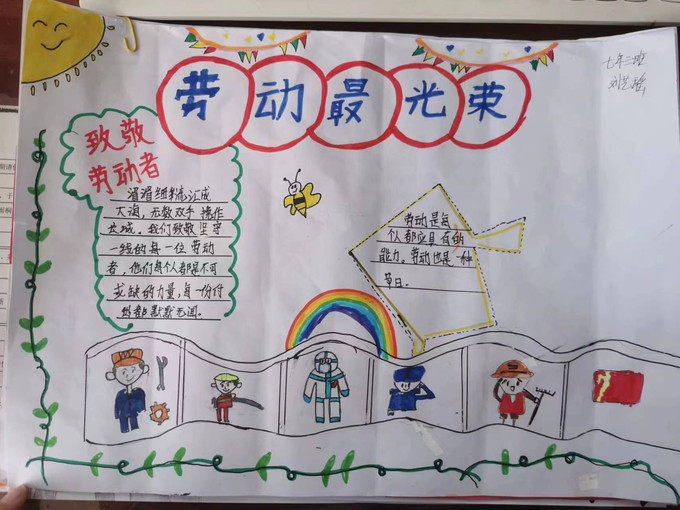 劳动最光荣
七年二班
刘艺瑶
致敬
劳动者
涓涓细流汇成
大海，无数双手 操作
长城。我们致敬 坚守
一线的每一位 劳动
者，他们每个人都是不可
或缺的力量，每一份付
出都默默无闻。
劳动是每
个人都应具有的
能力，劳动也是一种
节日。